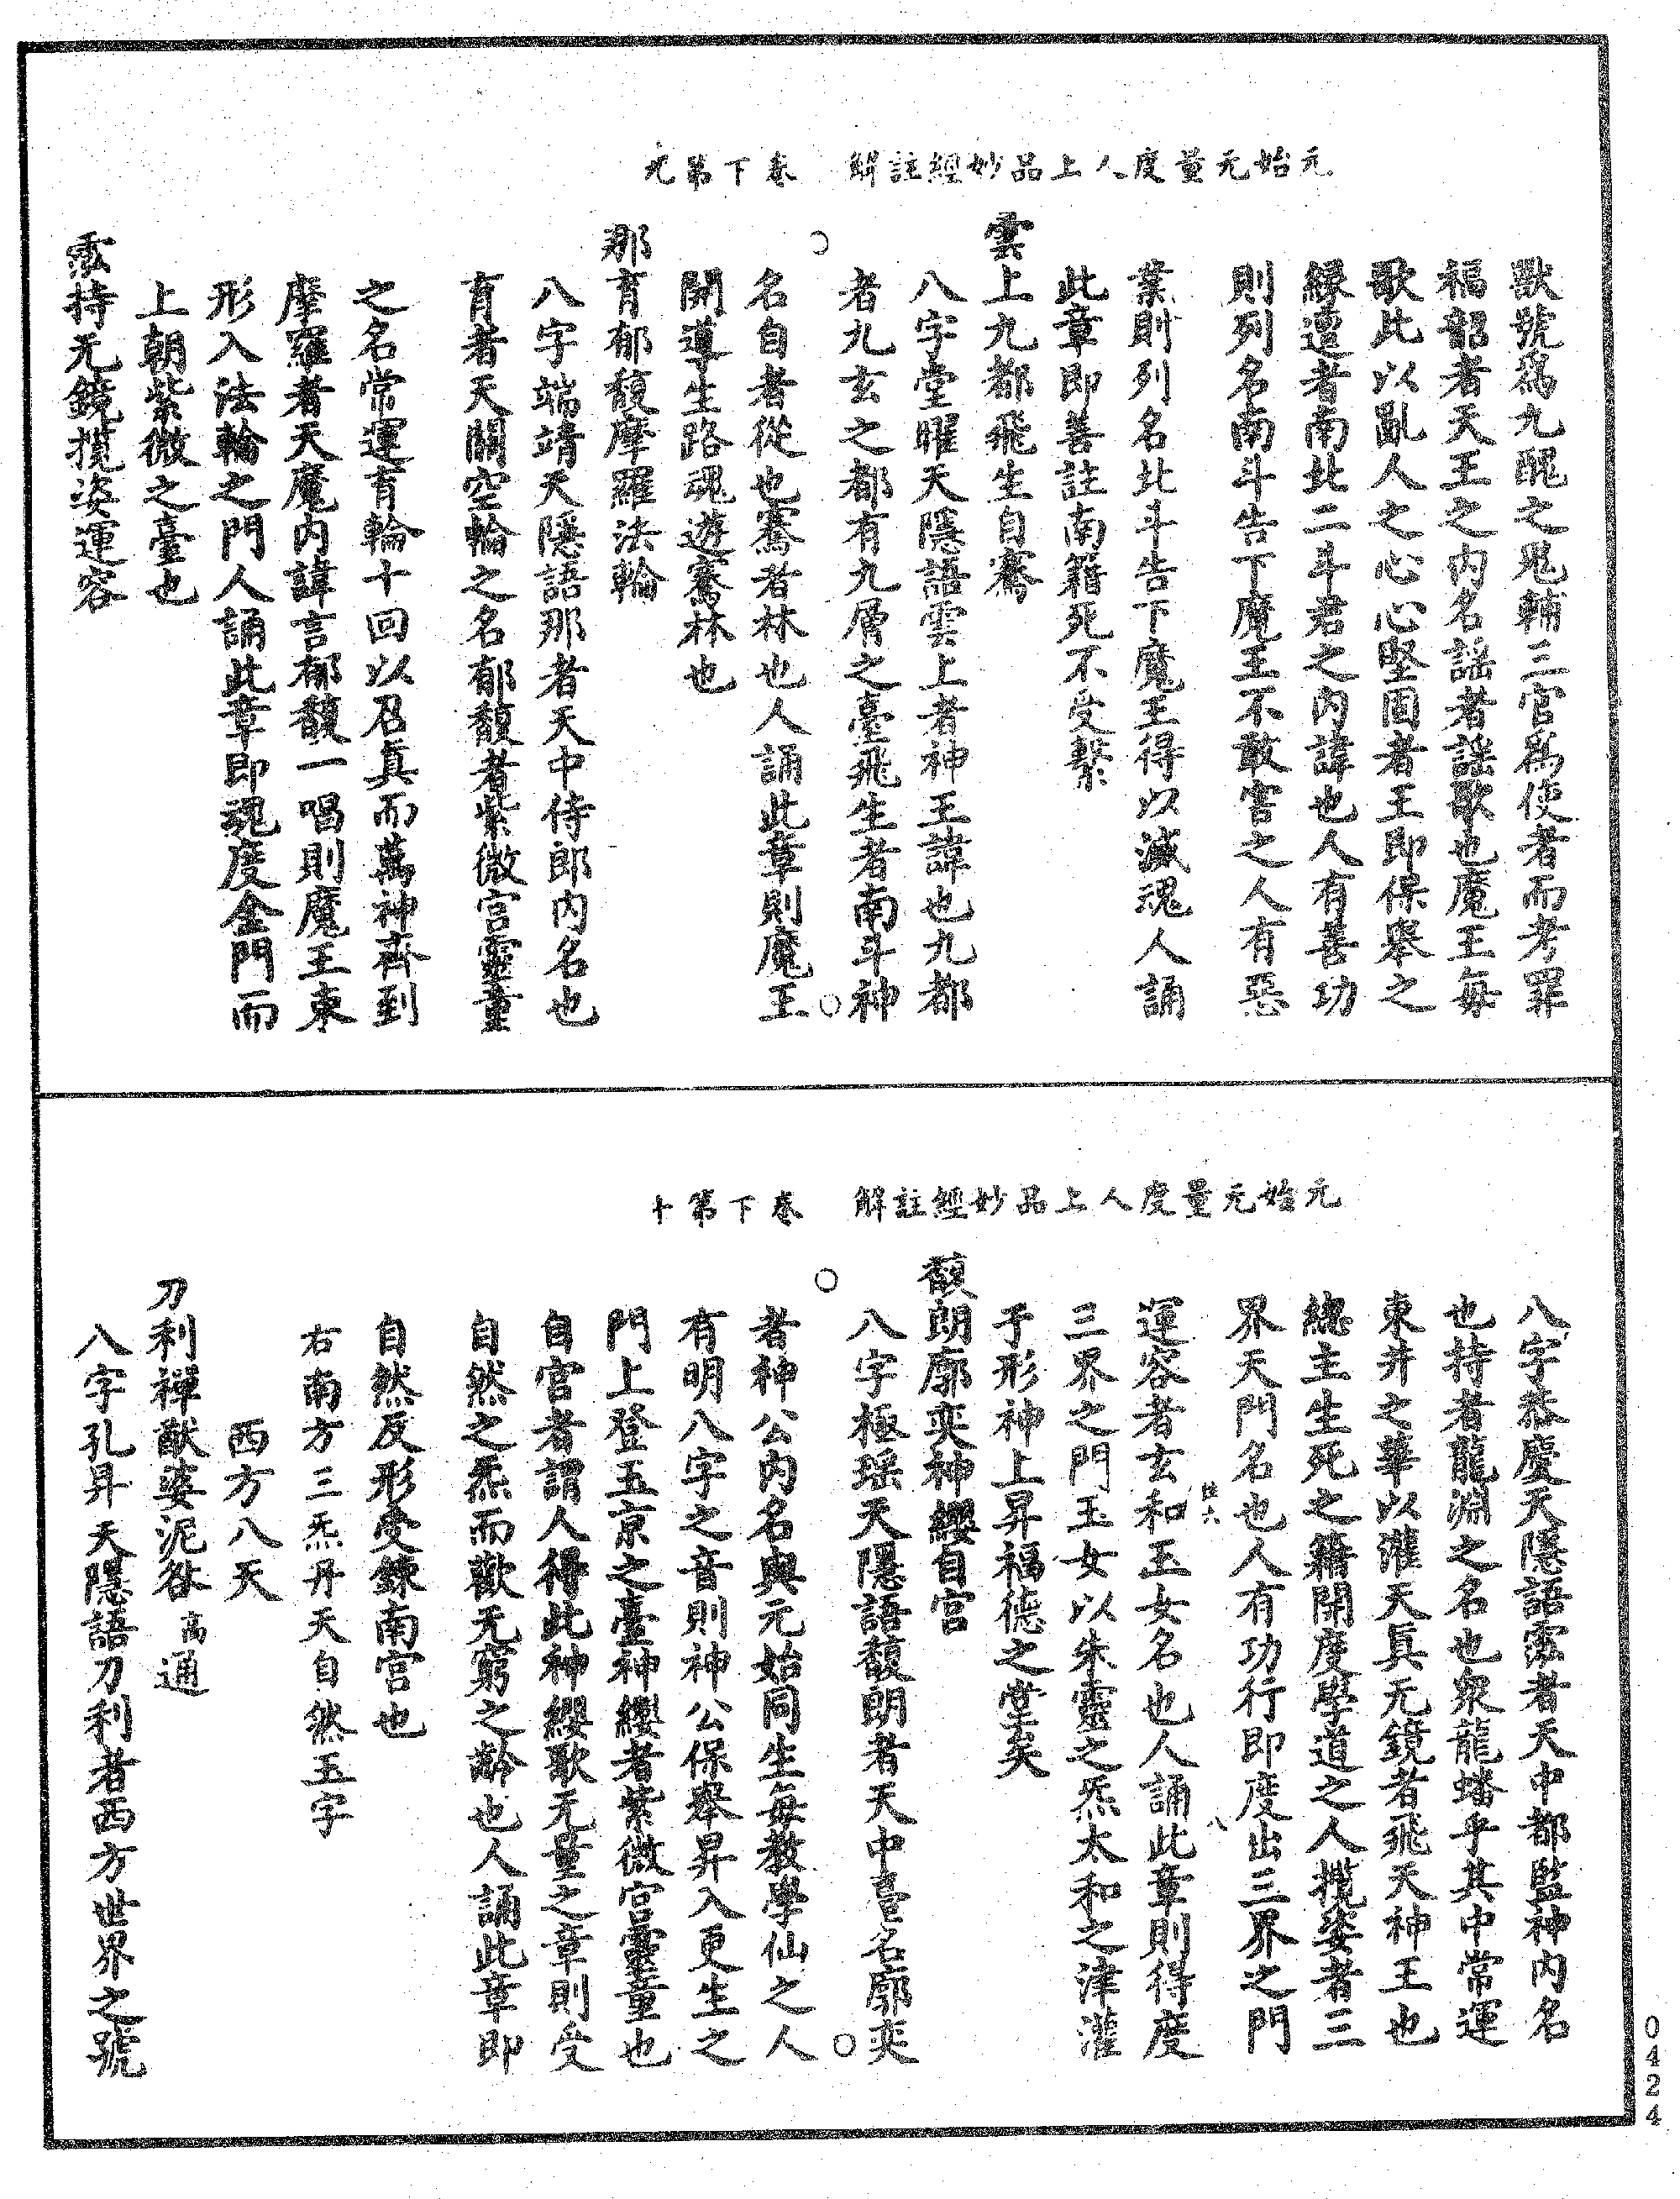 元始无量度人上品妙經註解　卷下第九
獸號爲九醜之鬼輔三官爲使者而考罪
福韶者天王之内名謡者謡歌也魔王每
歌此以亂人之心心堅固者王即保舉之
緣邅者南北二斗君之内諱也人有善功
則列名南斗告下魔王不敢害之人有惡
業則列名北斗告下魔王得以滅魂人誦
此章即善註南籍死不受繫
雲上九都飛生自騫
八字堂曜天隱語雲上者神王諱也九都
者九玄之都有九層之臺飛生者南斗神
名自者從也騫者林也人誦此章則魔王
開導生路魂遊騫林也
那育郁馥摩羅法輪
八字端靖天隱語那者天中侍郎内名也
育者天關空輪之名郁馥者紫微宫靈童
之名常運育輪十回以召真而萬神齊到
摩羅者天魔内諱言郁馥一唱則魔王束
形入法輪之門人誦此章即魂度金門而
上朝紫微之臺也
霐持无鏡攬姿運容
元始无量度人上品妙經註解　卷下第十
八字恭慶天隱語霐者天中都監神内名
也持者龍淵之名也衆龍蟠乎其中常運
東井之華以灌天真无鏡者飛天神王也
總主生死之籍開度學道之人攬姿者三
界天門名也人有功行即度出三界之門
運容者玄和玉女名也人誦此章則得度
三界之門玉女以朱靈之炁太和之津灌
于形神上昇福德之堂矣
馥朗廓奕神纓自宫
八字極瑶天隱語馥朗者天中臺名廓奕
者神公内名與元始同生每教學仙之人
有明八字之音則神公保舉昇入更生之
門上登五京之臺神纓者紫微宫靈童也
自宫者謂人得此神纓歌无量之章則受
自然之炁而歡无窮之齡也人誦此章即
自然反形受鍊南宫也
右南方三炁丹天自然玉字
西方八天
刀利禪猷婆泥咎通
八字孔昇天隱語刀利者西方世界之號
0424